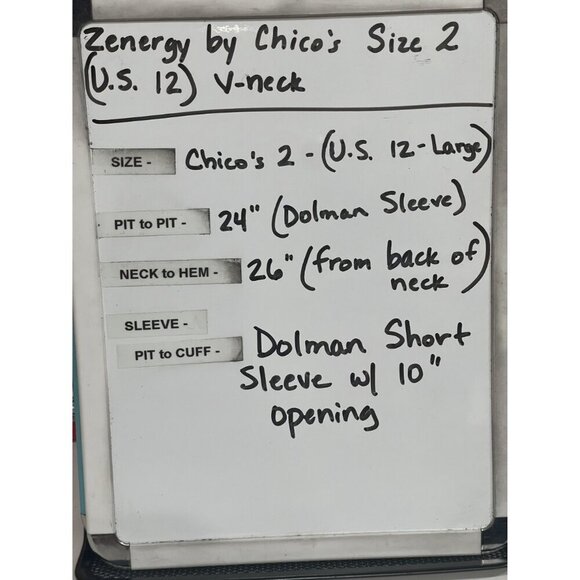 Zenergy by Chico's Size 2
(U.S. 12) V-neck
SIZE - Chico's 2 - (U.S. 12-Large)
PIT to PIT - 24" (Dolman Sleeve)
NECK to HEM - 26" (from back of
neck)
SLEEVE -
PIT to CUFF - Dolman Short
Sleeve w/ 10"
opening